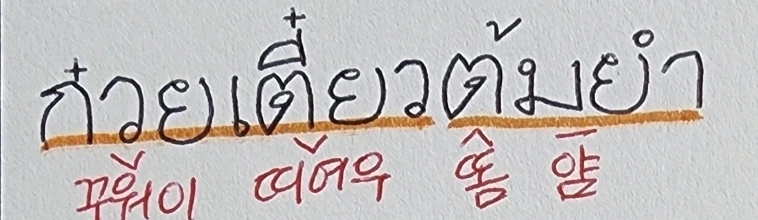 ก๋วยเตี๋ยวต้มยำ
꾸워이 띠여우 똠 얌